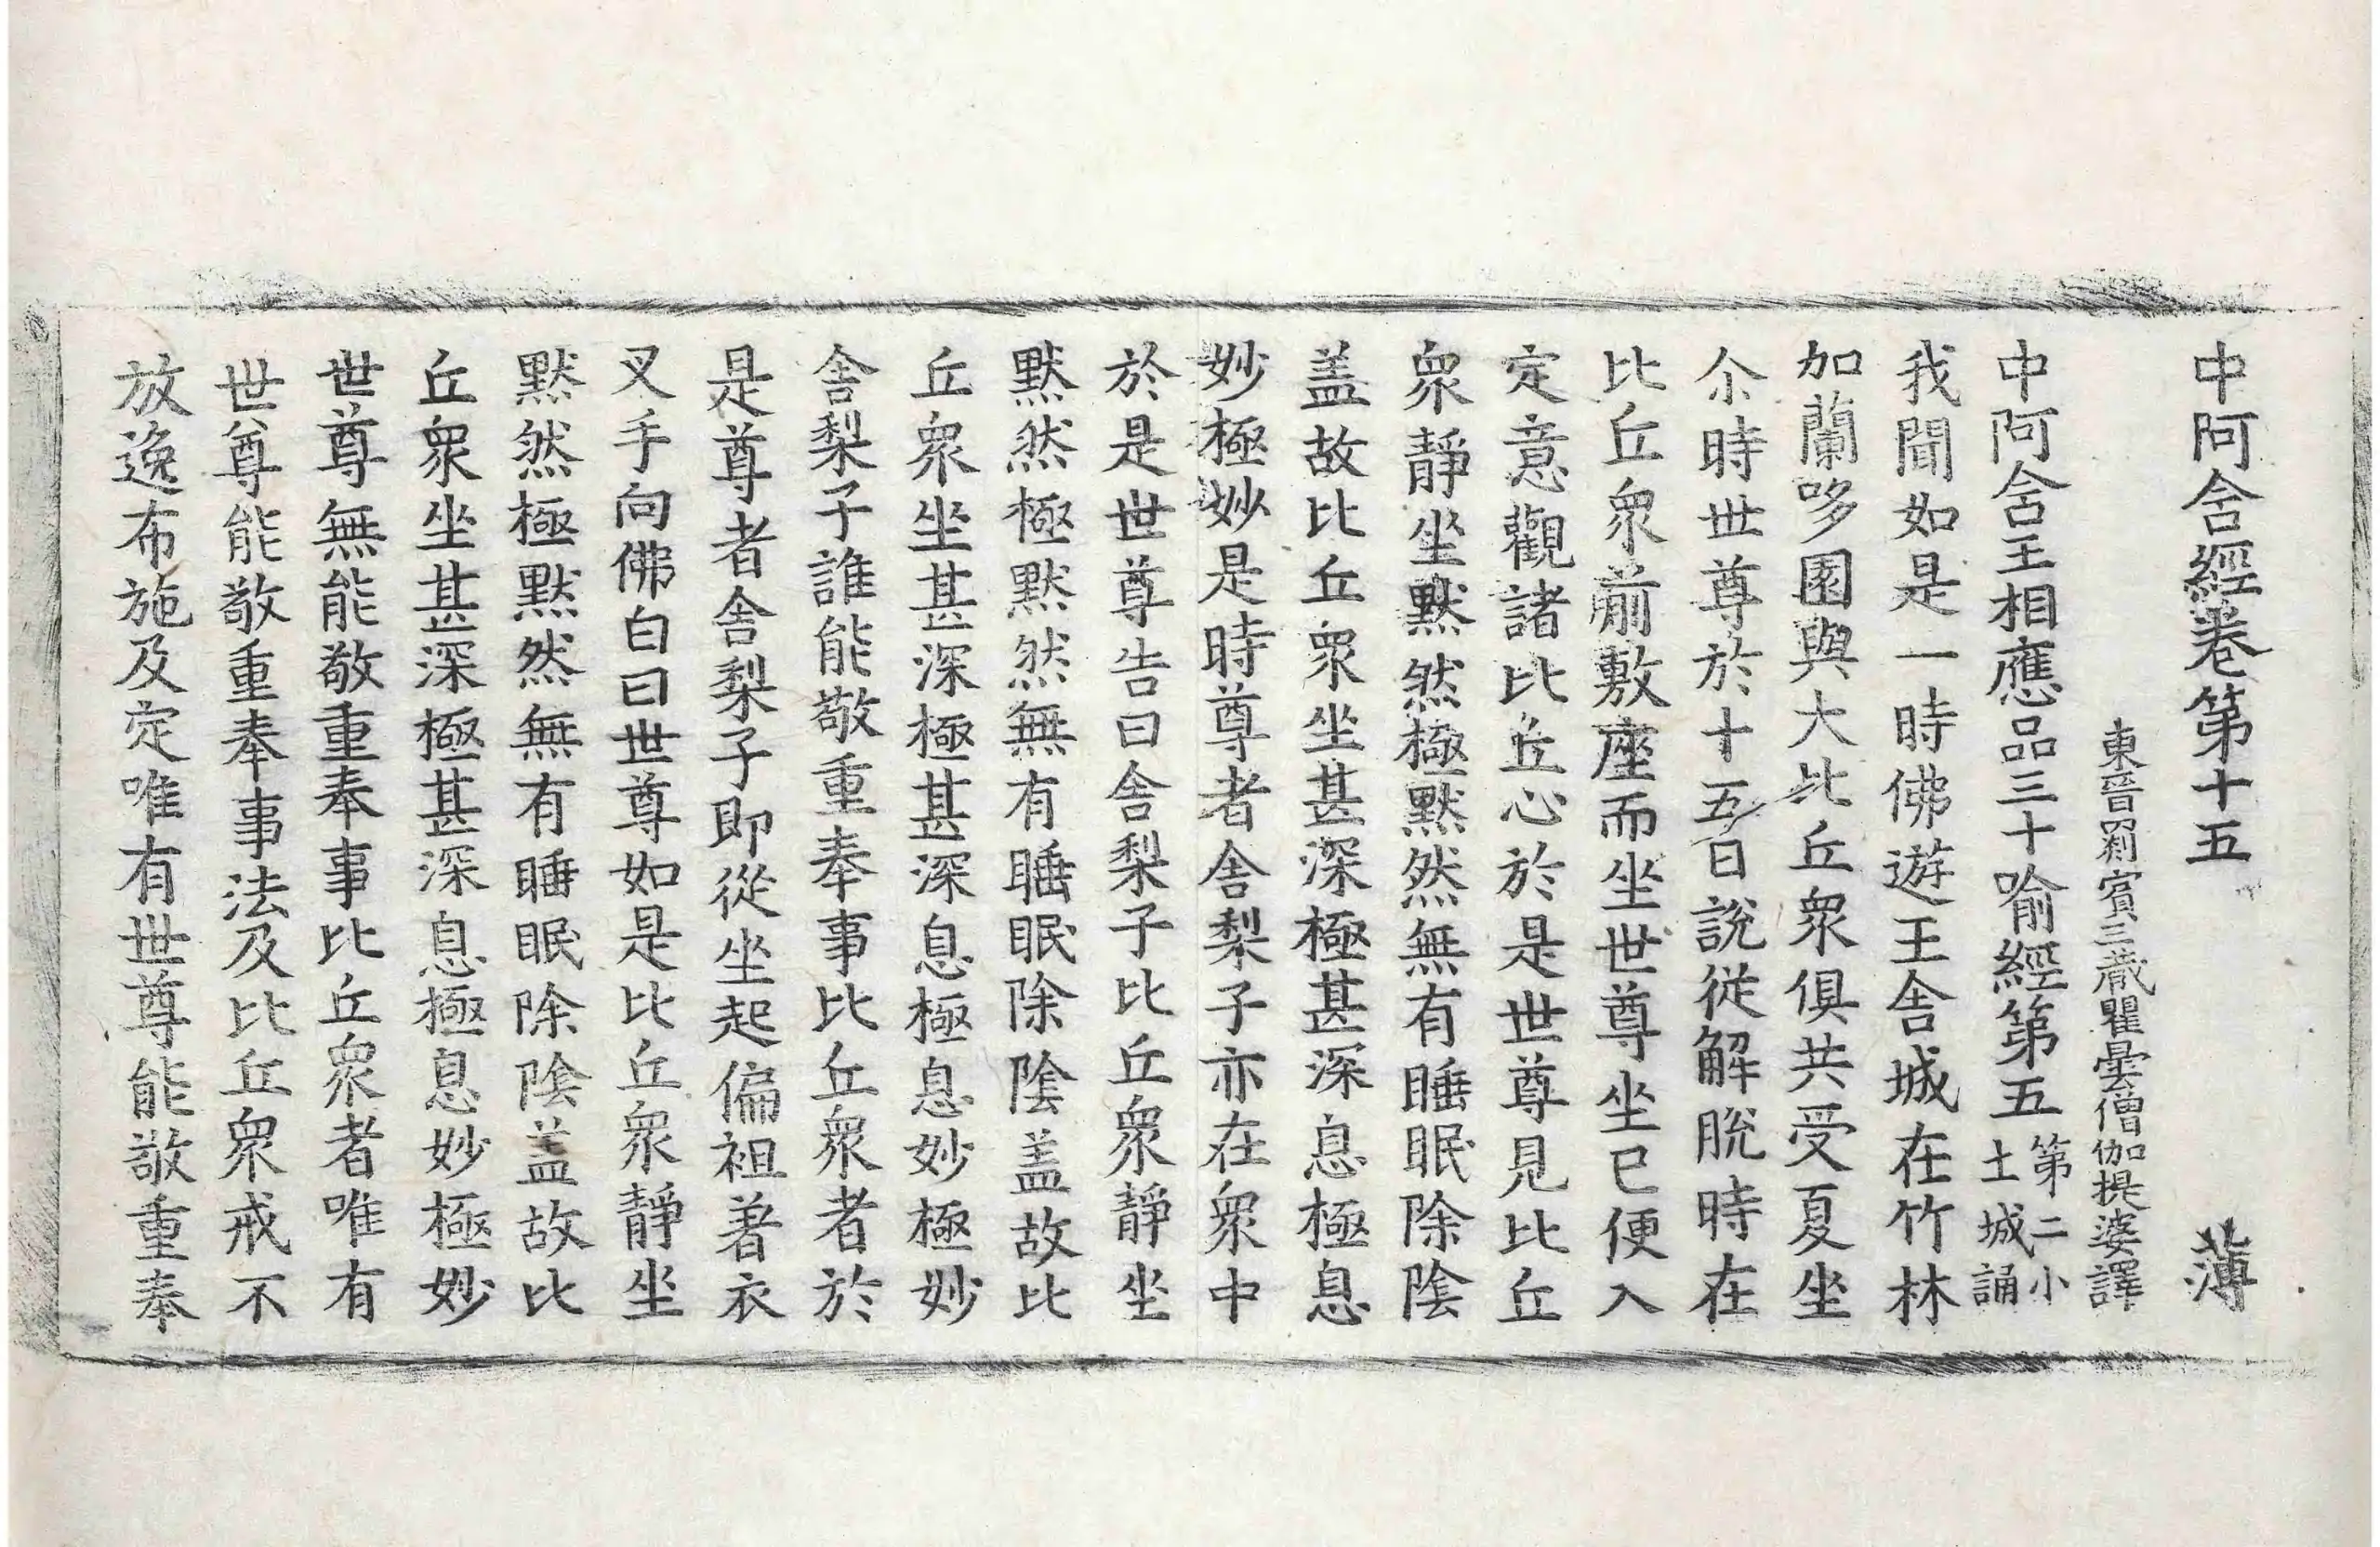 中阿含經卷第十五　薄
東晉罽賓三藏瞿曇僧伽提婆譯
中阿含王相應品三十喻經第五第二小土城誦
我聞如是一時佛遊王舍城在竹林
加蘭哆園與大比丘衆俱共受夏坐
尒時世尊於十五日說從解脫時在
比丘衆前敷座而坐世尊坐已便入
定意觀諸比丘心於是世尊見比丘
衆靜坐默然極默然無有睡眠除陰
盖故比丘衆坐甚深極甚深息極息
妙極妙是時尊者舍梨子亦在衆中
於是世尊告曰舍梨子比丘衆靜坐
默然極默然無有睡眠除陰盖故比
丘衆坐甚深極甚深息極息妙極妙
舍梨子誰能敬重奉事比丘衆者於
是尊者舍梨子即從坐起偏袒著衣
叉手向佛白曰世尊如是比丘衆靜坐
默然極默然無有睡眠除陰盖故比
丘衆坐甚深極甚深息極息妙極妙
世尊無能敬重奉事比丘衆者唯有
世尊能敬重奉事法及比丘衆戒不
放逸布施及定唯有世尊能敬重奉